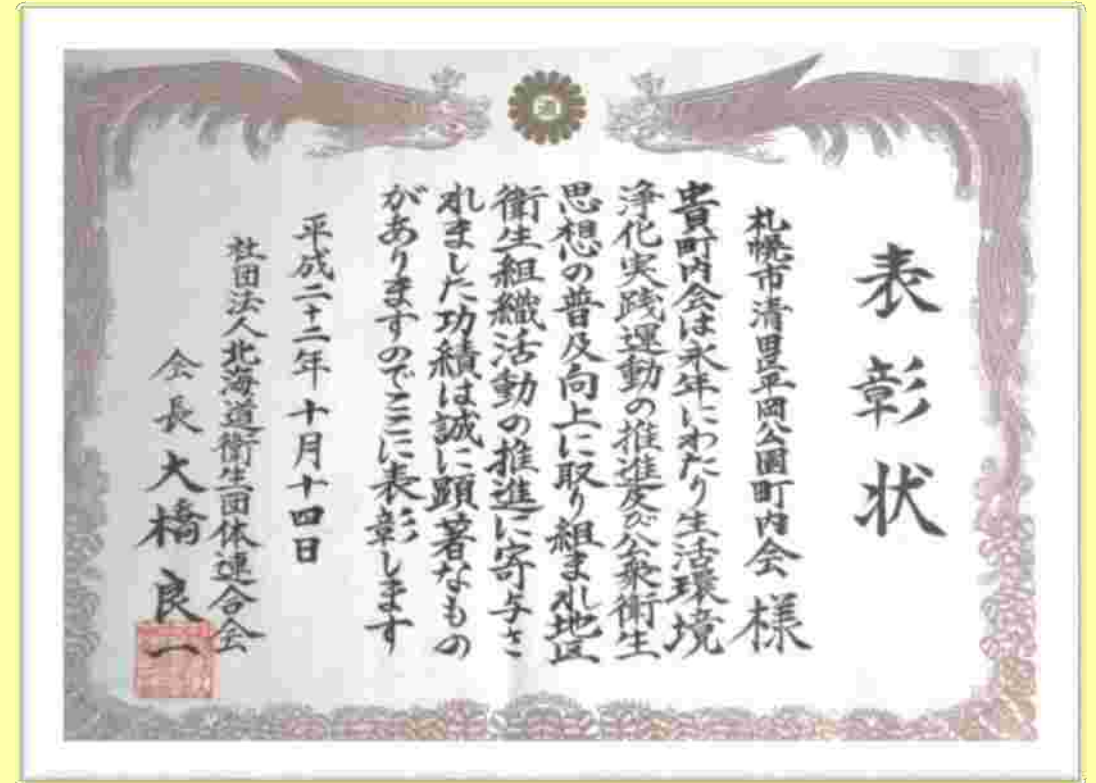 表彰状
札幌市清田区平岡公園町内会様
貴町内会は永年にわたり生活環境
浄化実践運動の推進及び公衆衛生
思想の普及向上に取り組まれ地区
衛生組織活動の推進に寄与さ
れました功績は誠に顕著なもの
がありますのでここに表彰します
平成二十二年十月十四日
社団法人北海道衛生団体連合会
会長大橋良一